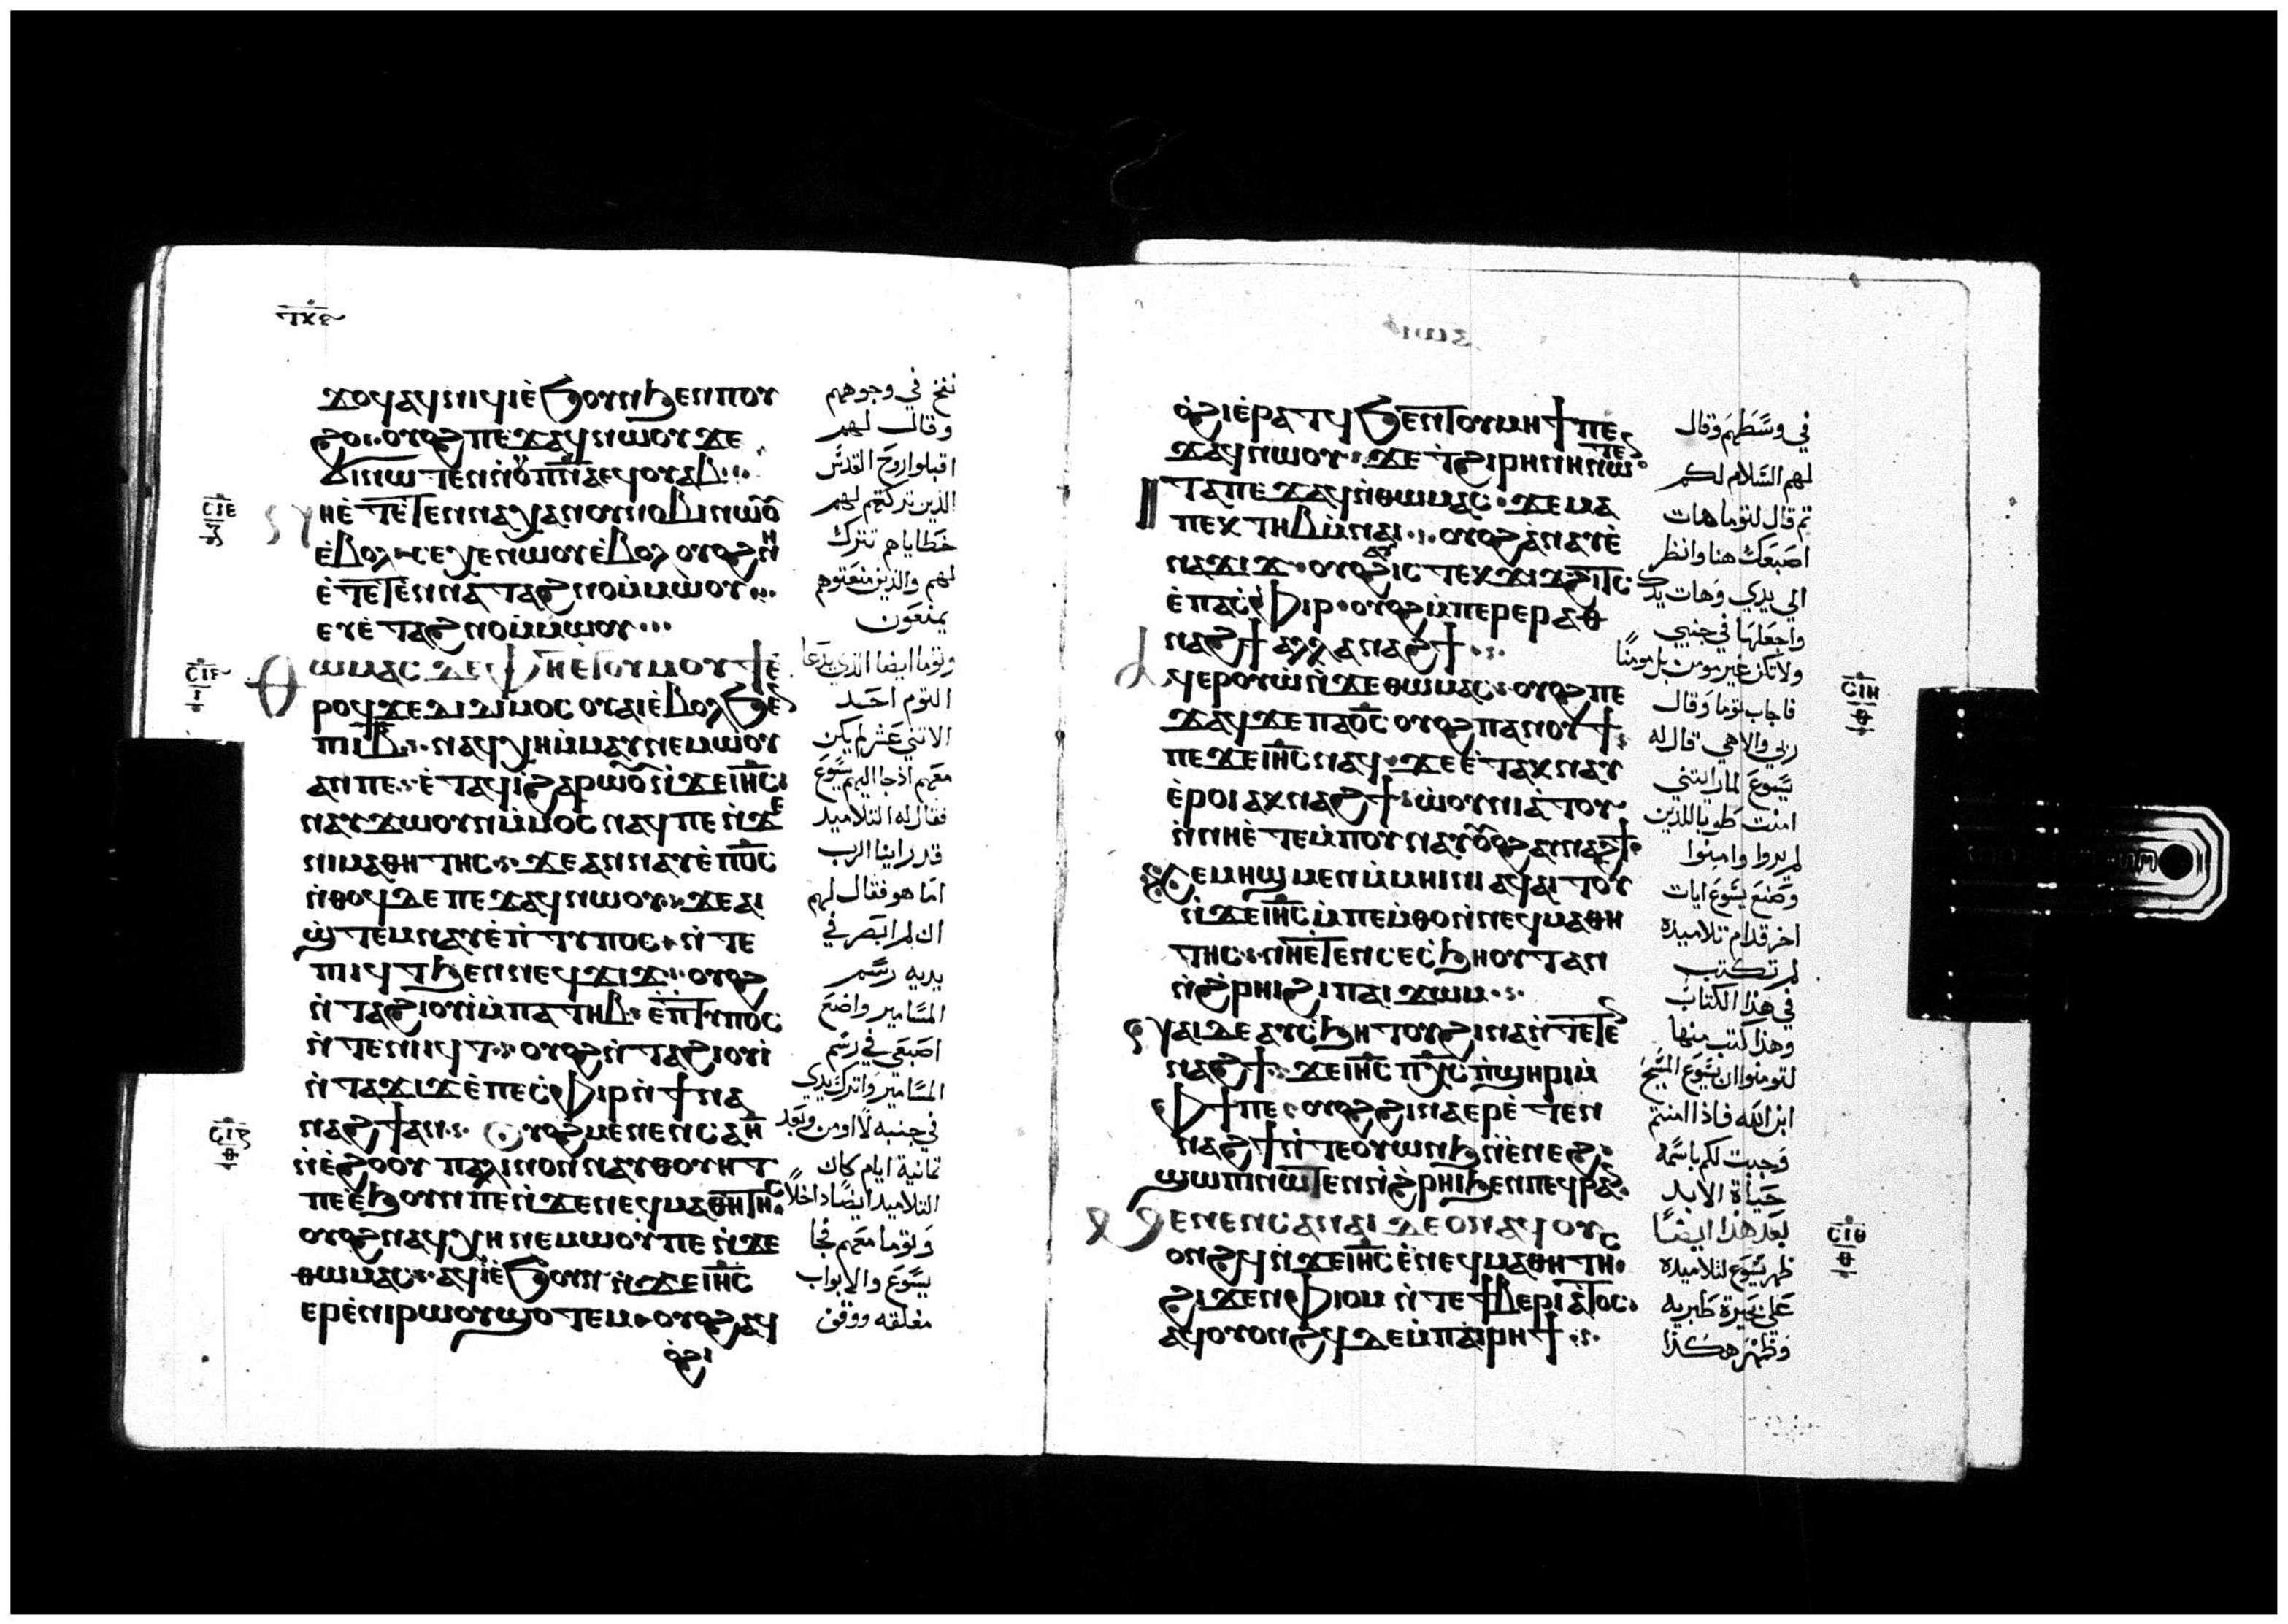 ϫⲟϥ ⲁϥⲛⲓϥⲓ ⲉ̀ϧⲟⲩⲛ ϧⲉⲛ ⲡⲟⲩ
ϩⲟ· ⲟⲩⲟϩ ⲡⲉϫⲁϥ ⲛⲱⲟⲩ ϫⲉ
ϭⲓ ⲛⲱⲧⲉⲛ ⲛ̀ⲟⲩⲡ̅ⲛ̅ⲁ̅ ⲉϥⲟⲩⲁⲃ
ⲛⲏ ⲉ̀ⲧⲉⲧⲉⲛⲛⲁⲭⲁ ⲛⲟⲩⲛⲟⲃⲓ ⲛⲱⲟⲩ
ⲉ̀ⲃⲟⲗ ⲥⲉⲭⲏ ⲛⲱⲟⲩ ⲉ̀ⲃⲟⲗ ⲟⲩⲟϩ ⲛⲏ
ⲉ̀ⲧⲉⲧⲉⲛⲛⲁⲧⲁϩⲛⲟ ⲙ̀ⲙⲱⲟⲩ
ⲉⲩⲉ̀ⲧⲁϩⲛⲟ ⲙ̀ⲙⲱⲟⲩ
ⲑⲱⲙⲁⲥ ⲇⲉ ⲫⲏ ⲉ̀ⲧⲟⲩⲙⲟⲩϯ ⲉ̀
ⲣⲟϥ ϫⲉ ⲇⲓⲇⲓⲙⲟⲥ ⲟⲩⲁⲓ ⲉ̀ⲃⲟⲗ ϧⲉⲛ
ⲡⲓⲓ̅ⲃ̅ ⲛⲁϥⲭⲏ ⲙ̀ⲙⲁⲩ ⲛⲉⲙⲱⲟⲩ
ⲁⲛ ⲡⲉ· ⲉ̀ⲧⲁϥⲓ̀ ϩⲁⲣⲱⲟⲩ ⲛ̀ϫⲉ ⲓⲏ̅ⲥ̅
ⲛⲁⲩϫⲱ ⲟⲩⲛ ⲙ̀ⲙⲟⲥ ⲛⲁϥ ⲡⲉ ⲛ̀ϫⲉ
ⲛⲓⲙⲁⲑⲏⲧⲏⲥ· ϫⲉ ⲁⲛⲛⲁⲩ ⲉ̀ⲡϭⲟ̅ⲥ̅
ⲛ̀ⲑⲟϥ ⲇⲉ ⲡⲉϫⲁϥ ⲛⲱⲟⲩ· ϫⲉ ⲁⲓ
ϣ̀ⲧⲉⲙⲛⲁⲩ ⲉ̀ⲡ̀ⲧⲩⲡⲟⲥ ⲛ̀ⲧⲉ
ⲡⲓⲓϥⲧ ϧⲉⲛ ⲛⲉϥϫⲓϫ· ⲟⲩⲟϩ
ⲛ̀ⲧⲁϩⲓⲟⲩⲓ̀ ⲙ̀ⲡⲁⲧⲏⲃ ⲉ̀ⲡ̀ⲧⲩⲡⲟⲥ
ⲛ̀ⲧⲉ ⲛⲓⲓϥⲧ· ⲟⲩⲟϩ ⲛ̀ⲧⲁϩⲓⲟⲩⲓ̀
ⲛ̀ⲧⲁϫⲓϫ ⲉ̀ⲡⲉϥⲥ̀ⲫⲓⲣ ⲛ̀ϯⲛⲁ
ⲛⲁϩϯ ⲁⲛ· ⲟⲩⲟϩ ⲙⲉⲛⲉⲛⲥⲁ ⲏ̅
ⲛ̀ⲉ̀ϩⲟⲟⲩ ⲡⲁⲗⲓⲛ ⲟⲛ ⲛⲁⲩⲑⲟⲩⲏⲧ
ⲡⲉ ⲉ̀ϧⲟⲩⲛ ⲡⲉ ⲛ̀ϫⲉ ⲛⲉϥⲙⲁⲑⲏⲧⲏⲥ
ⲟⲩⲟϩ ⲛⲁϥⲭⲏ ⲛⲉⲙⲱⲟⲩ ⲡⲉ ⲛ̀ϫⲉ
ⲑⲱⲙⲁⲥ· ⲁϥⲓ̀ ⲉ̀ϧⲟⲩⲛ ⲛ̀ϫⲉ ⲓⲏ̅ⲥ̅
ⲉⲣⲉ ⲛⲓⲣⲱⲟⲩ ϣⲟⲧⲉⲙ ⲟⲩⲟϩ ⲁϥ
ⲟ̀ϩⲓ
نفخ في وجوههم
وقال لهم
اقبلوا روح القدس
الذين تركتم لهم
خطاياهم تترك
لهم والذين منعتوهم
يمنعون
وتوما ايضا الذي يدعا
التوم احد
الاثني عشر لم يكن
معهم اذ جا اليهم يسوع
فقال له التلاميد
قد راينا الرب
اما هو فقال لهم
ان لم ابصر في
يديه رسم
المسامير واضع
اصبعي في رسم
المسامير واترك يدي
في جنبه لا اومن وبعد
تمانية ايام كان
التلاميد ايضا داخلا
وتوما معهم فجا
يسوع والابواب
مغلقه ووقف
ⲟ̀ϩⲓ ⲉ̀ⲣⲁⲧϥ ϧⲉⲛ ⲧⲟⲩⲙⲏϯ ⲡⲉ
ϫⲁϥ ⲛⲱⲟⲩ· ϫⲉ ⲧ̀ϩⲓⲣⲏⲛⲏ ⲛⲱⲧⲉⲛ
ⲓⲧⲁ ⲡⲉϫⲁϥ ⲛ̀ⲑⲱⲙⲁⲥ· ϫⲉ ⲙⲁ
ⲡⲉⲕⲧⲏⲃ ⲙ̀ⲛⲁⲓ· ⲟⲩⲟϩ ⲁ̀ⲛⲁⲩ ⲉ̀
ⲛⲁϫⲓϫ· ⲟⲩⲟϩ ⲁⲩⲓⲥ ⲧⲉⲕϫⲓϫ ϩⲓⲧⲥ
ⲉ̀ⲡⲁⲥ̀ⲫⲓⲣ· ⲟⲩⲟϩ ⲙ̀ⲡⲉⲣⲉⲣⲁⲑ
ⲛⲁϩϯ ⲁⲗⲗⲁ ⲛⲁϩϯ
ⲁϥⲉⲣⲟⲩⲱ̀ ⲛ̀ϫⲉ ⲑⲱⲙⲁⲥ· ⲟⲩⲟϩ ⲡⲉ
ϫⲁϥ ϫⲉ ⲡⲁϭⲟ̅ⲥ̅ ⲟⲩⲟϩ ⲡⲁⲛⲟⲩϯ
ⲡⲉϫⲉ ⲓⲏ̅ⲥ̅ ⲛⲁϥ· ϫⲉ ⲉ̀ⲧⲁⲕⲛⲁⲩ
ⲉ̀ⲣⲟⲓ ⲁⲕⲛⲁϩϯ· ⲱ̀ⲟⲩⲛⲓⲁ̀ⲧⲟⲩ
ⲛ̀ⲛⲏ ⲉ̀ⲧⲉⲙ̀ⲡⲟⲩⲛⲁⲩ ⲟⲩⲟϩ ⲁⲩⲛⲁϩϯ
ϩⲁⲛⲕⲉⲙⲏϣ ⲙⲉⲛ ⲙ̀ⲙⲏⲓⲛⲓ ⲁϥⲁⲓⲧⲟⲩ
ⲛ̀ϫⲉ ⲓⲏ̅ⲥ̅ ⲙ̀ⲡⲉⲙ̀ⲑⲟ ⲛ̀ⲛⲉϥⲙⲁⲑⲏ
ⲧⲏⲥ· ⲛⲏ ⲉ̀ⲧⲉⲛⲥⲉⲥ̀ϧⲏⲟⲩⲧ ⲁⲛ
ⲛ̀ϩ̀ⲣⲏⲓ ϩⲓ ⲡⲁⲓϫⲱⲙ
ⲛⲁⲓ ⲇⲉ ⲁⲩⲥ̀ϧⲏⲧⲟⲩ ϩⲓⲛⲁ ⲛ̀ⲧⲉⲧⲉⲛ
ⲛⲁϩϯ· ϫⲉ ⲓⲏ̅ⲥ̅ ⲡⲭ̅ⲥ̅ ⲡ̀ϣⲏⲣⲓ ⲙ̀
ⲫϯ ⲡⲉ· ⲟⲩⲟϩ ϩⲓⲛⲁ ⲉⲣⲉⲧⲉⲛ
ⲛⲁϩϯ ⲛ̀ⲧⲉ ⲟⲩⲱⲛϧ ⲛ̀ⲉ̀ⲛⲉϩ
ϣⲱⲡⲓ ⲛⲱⲧⲉⲛ ⲛ̀ϩ̀ⲣⲏⲓ ϧⲉⲛ ⲡⲉϥⲣⲁⲛ
ⲙⲉⲛⲉⲛⲥⲁ ⲛⲁⲓ ⲇⲉ ⲟⲛ ⲁϥⲟⲩ
ⲟⲛϩϥ ⲛ̀ϫⲉ ⲓⲏ̅ⲥ̅ ⲉ̀ⲛⲉϥⲙⲁⲑⲏⲧⲏⲥ
ϩⲓϫⲉⲛ ⲫ̀ⲓⲟⲙ ⲛ̀ⲧⲉ ϯⲃⲉⲣⲓⲁ̀ⲧⲟⲥ
ⲁϥⲟⲩⲟⲛϩϥ ⲇⲉ ⲙ̀ⲡⲁⲓⲣⲏϯ
في وسطهم وقال
لهم السلام لكم
تم قال لتوما هات
اصبعك هنا وانظر
الي يدي وهات يدك
واجعلها في جنبي
ولا تكن غير مومن بل مومنًا
فاجاب توما وقال
ربي والاهي قال له
يسوع لما رايتني
امنت طوبا للذين
لم يروا وامنوا
وصنع يسوع ايات
اخر قدام تلاميده
لم تكتب
في هذا الكتاب
وهذا كتب منها
لتومنوا ان يسوع المسيح
ابن الله فاذا امنتم
وجبت لكم باسمه
حياة الابد
بعد هذا ايضًا
ظهر يسوع لتلاميده
على بحيرة طبريه
وظهر هكذا